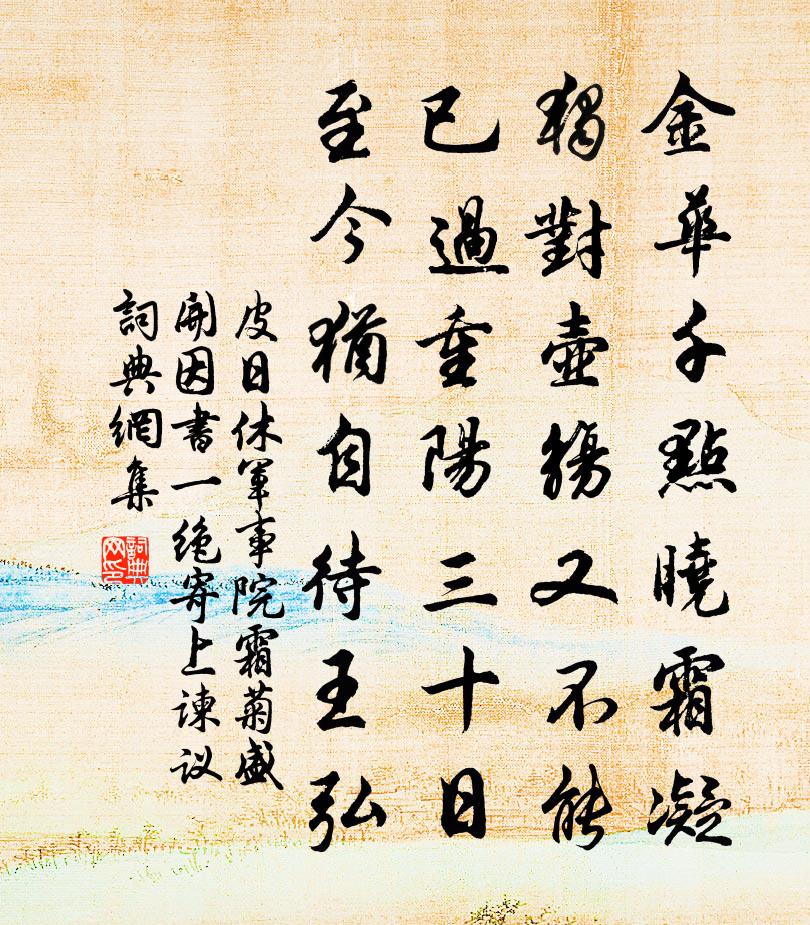 金華千點曉霜凝
獨對壺觴又不能
已過重陽三十日
至今猶自待王弘
皮日休軍事院霜菊盛
開因書一绝寄上谏议
詞典網集
詞典网印